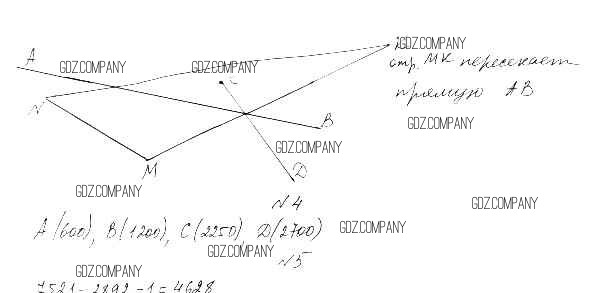 A
GDZ.COMPANY
GDZ.COMPANY
C
GDZ.COMPANY
отр. MK пересекает
прямую AB
N
B
GDZ.COMPANY
GDZ.COMPANY
M
D
GDZ.COMPANY
N4
GDZ.COMPANY
A(600), B(1200), C(2250), D(2700)
GDZ.COMPANY
GDZ.COMPANY
N5
GDZ.COMPANY
7521-2892-1=4628